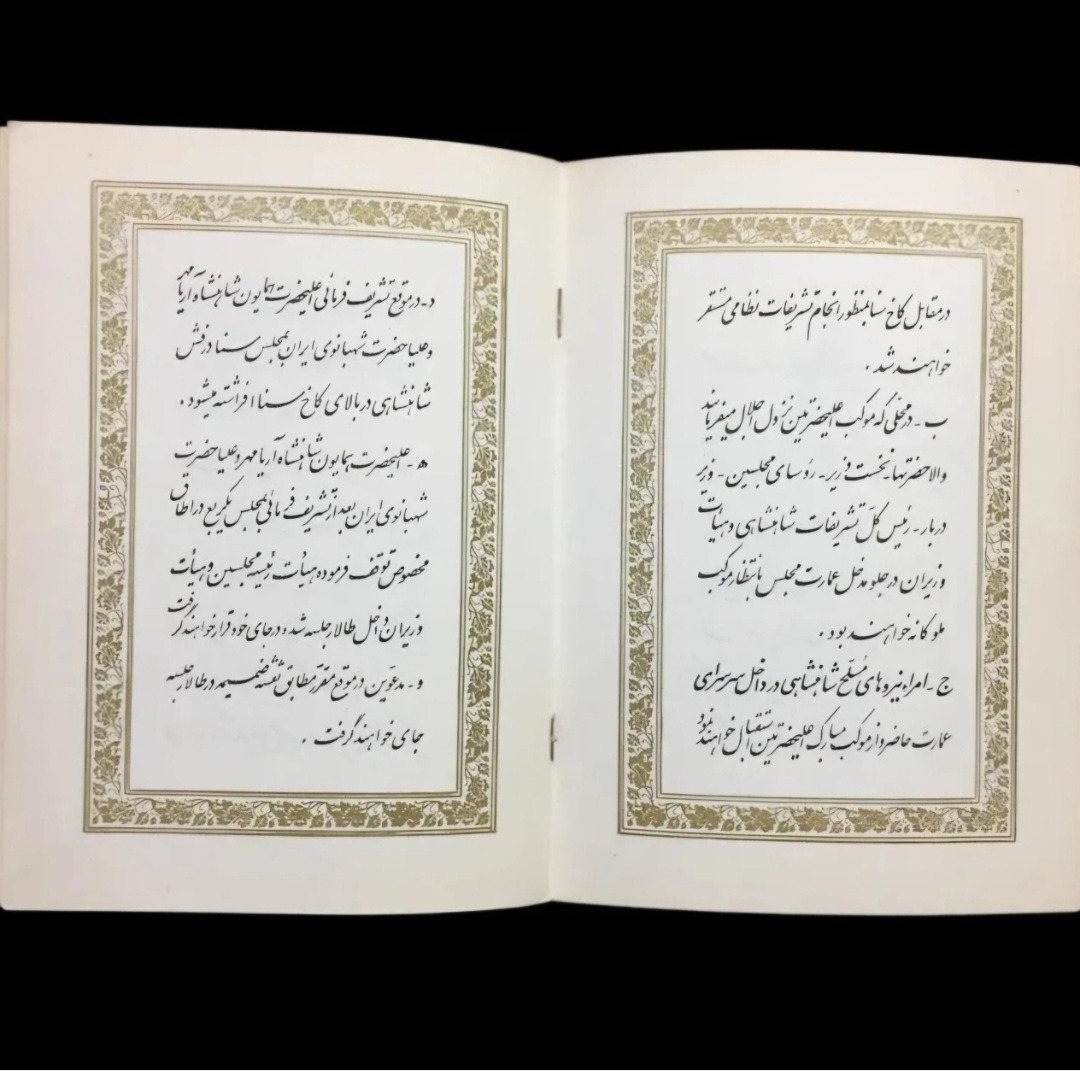 در مقابل کاخ سنا بمنظور انجام تشریفات نظامی مستقر
خواهند شد .
ب - در محلی که موکب اعلیحضرتین نزول اجلال میفرمایند
والاحضرتها - نخست وزیر - رؤسای مجلسین - وزیر
دربار - رئیس کل تشریفات شاهنشاهی و هیأت
وزیران در جلو مدخل عمارت مجلس بانتظار موکب
ملوکانه خواهند بود .
ج - امراء نیروهای مسلح شاهنشاهی در داخل سرسرای
عمارت حاضر و از موکب مبارک اعلیحضرتین استقبال خواهند نمود
د - در موقع تشریف فرمائی اعلیحضرت همایون شاهنشاه آریامهر
و علیاحضرت شهبانوی ایران بمجلس سنا درفش
شاهنشاهی در بالای کاخ سنا افراشته میشود .
ه - اعلیحضرت همایون شاهنشاه آریامهر و علیاحضرت
شهبانوی ایران بعد از تشریف فرمائی بمجلس یکربع در اطاق
مخصوص توقف فرموده هیأت رئیسه مجلسین و هیأت
وزیران داخل طالار جلسه شده در جای خود قرار خواهند گرفت
و - مدعوین در موقع مقرر مطابق نقشه ضمیمه در طالار جلسه
جای خواهند گرفت .